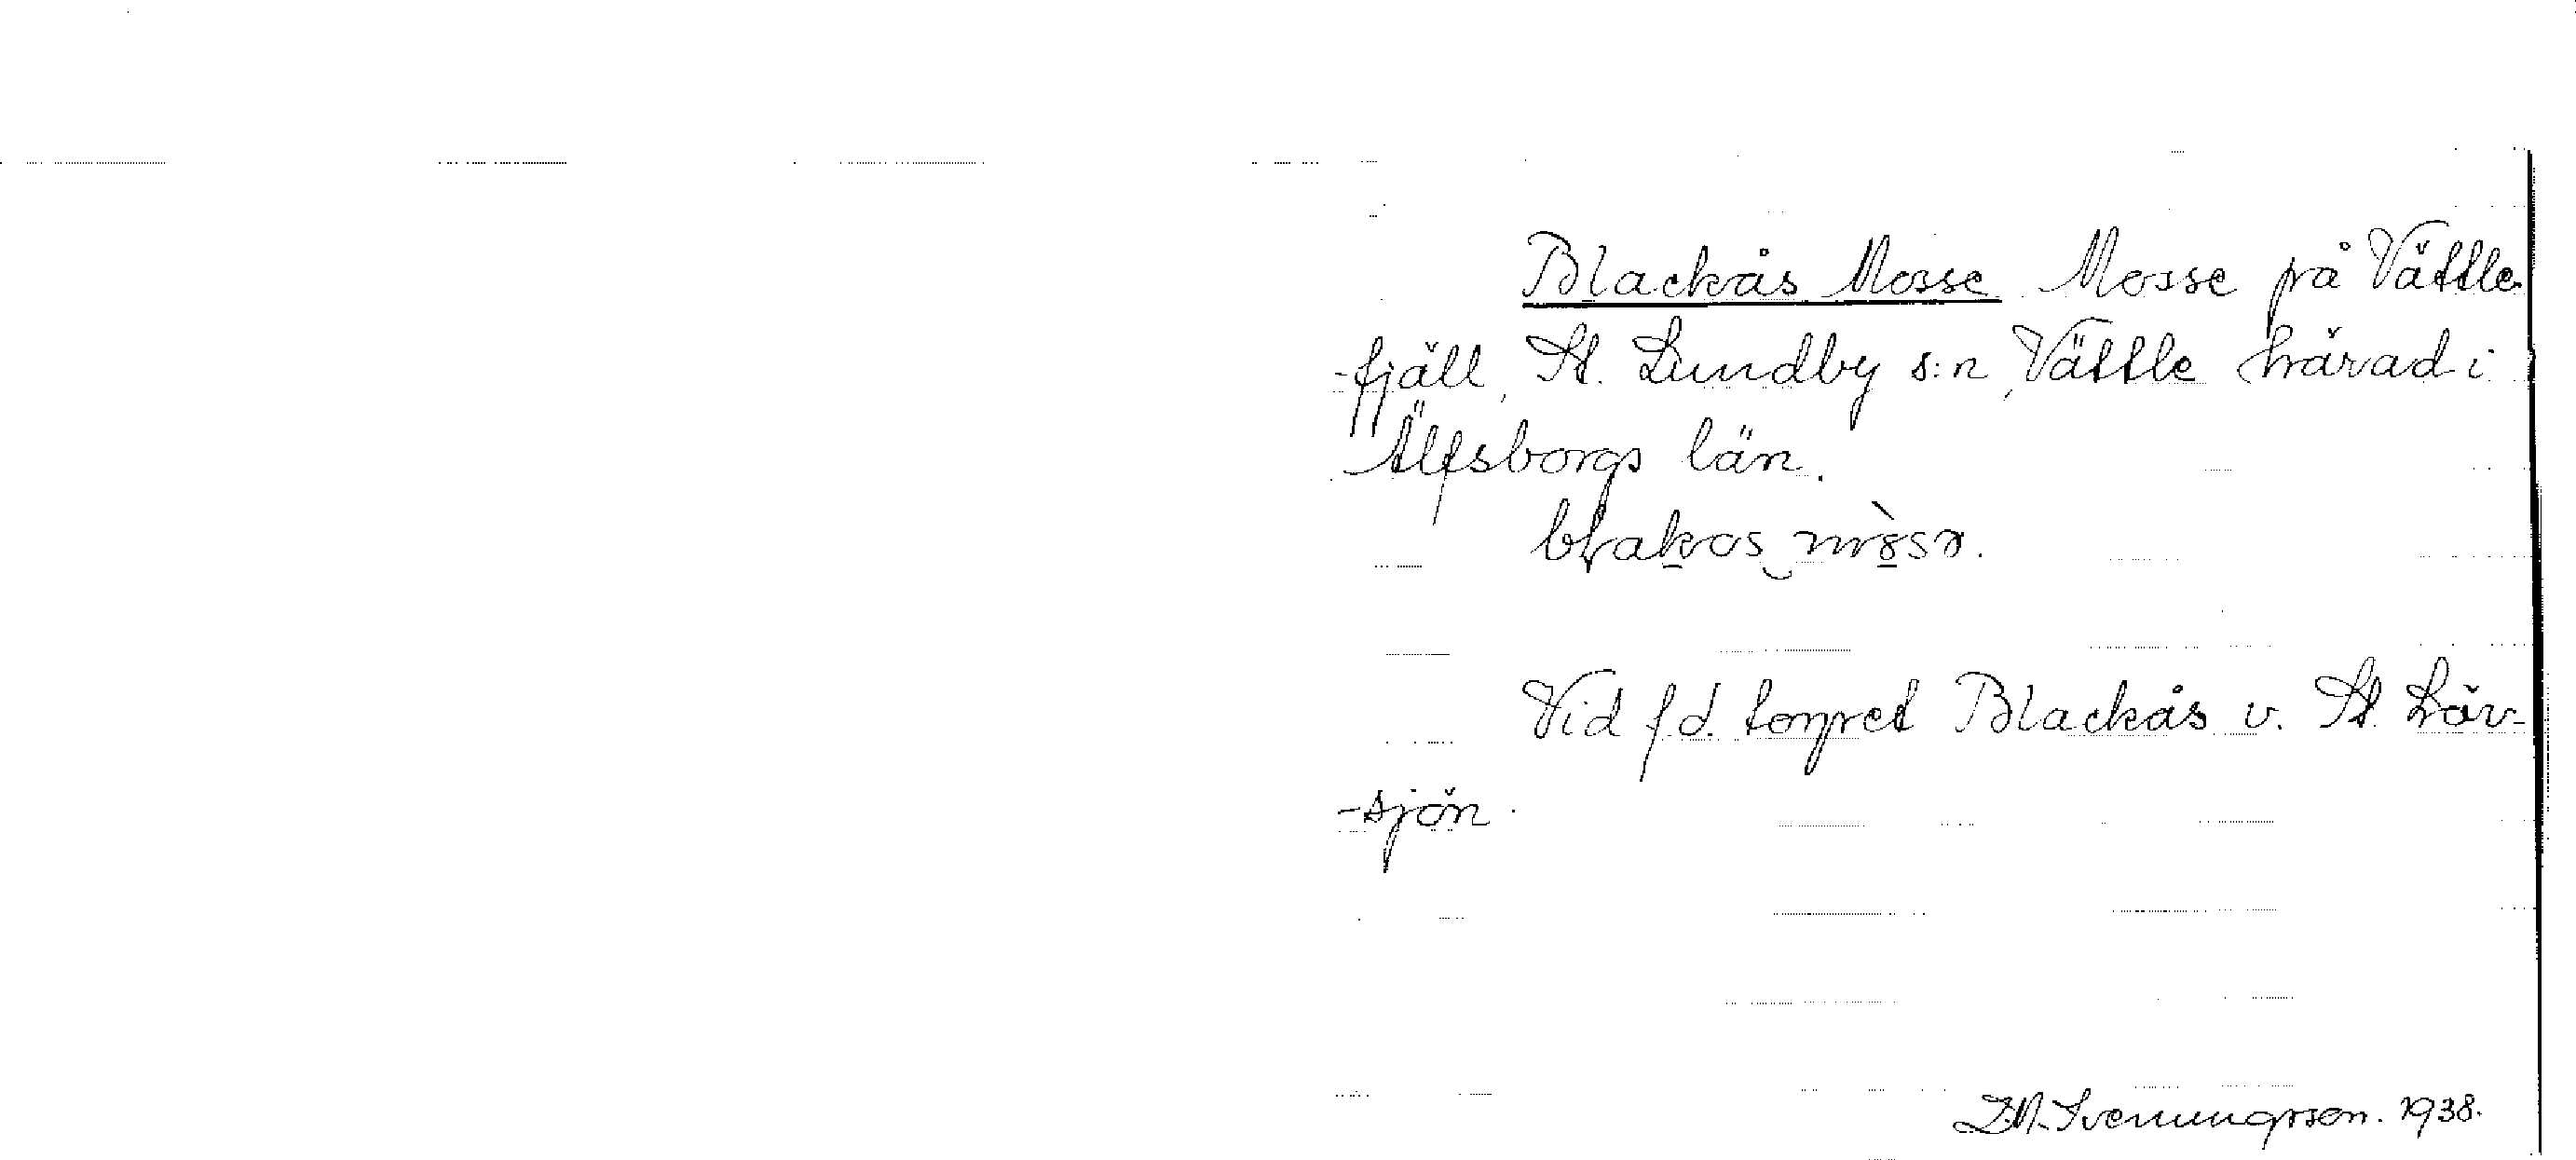 Blackås Mosse Mosse på Vättle
-fjäll, St. Lundby s:n, Vättle härad i
Älfsborgs län.
Vid f.d. torpet Blackås v. St. Häv-
-sjön.
Svenungsson. 1938.